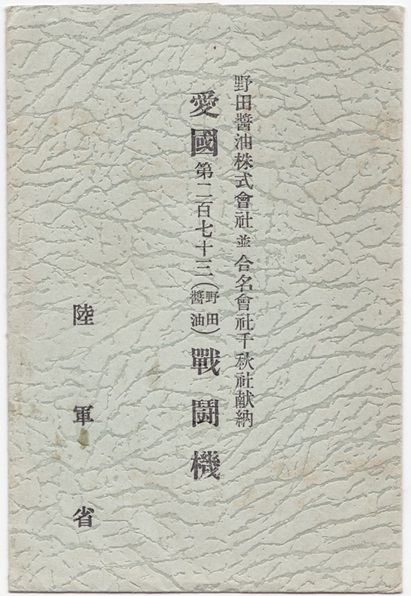 野田醬油株式會社並合名會社千秋社献納
愛國第二百七十三(野田醬油)戰鬪機
陸軍省